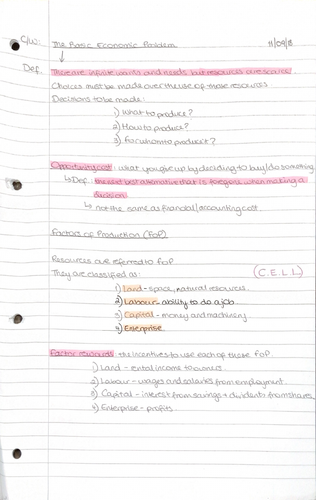 C/W: The Basic Economic Problem 11/09/8
Def: There are infinite wants and needs, but resources are scarce.
Choices must be made over the use of those resources
Decisions to be made:
1) What to produce?
2) How to produce?
3) For whom to produce it?
Opportunity cost: what you give up by deciding to buy/do something
↳ Def: the next best alternative that is foregone when making a
decision
↳ not the same as financial/accounting cost.
Factors of Production (FoP)
Resources are referred to FoP
They are classified as: (C.E.L.L)
1) Land - space, natural resources.
2) Labour - ability to do a job
3) Capital - money and machinery
4) Enterprise
Factor rewards: the incentives to use each of these FoP.
1) Land - rental income to owners.
2) Labour - wages and salaries from employment
3) Capital - interest from savings + dividents from shares
4) Enterprise - profits.